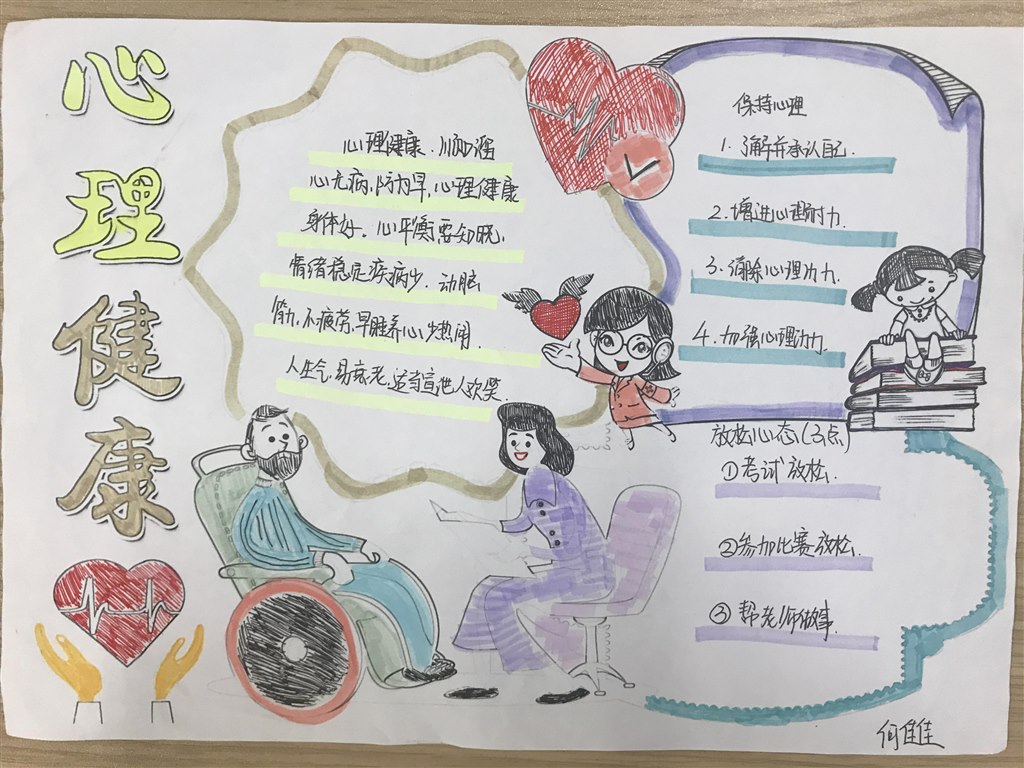 心理健康
心理健康、顺如滔
心无病,防为早,心理健康
身体好、心平衡要知晓,
情绪稳定疾病少、动脑
筋力,不疲劳,早睡养心少热闹.
人生气,易衰老,适当宣泄人欢笑.
保持心理
1. 了解并承认自己.
2. 增进心理耐力.
3. 消除心理力.
4. 加强心理动力.
放松心态(3点)
①考试放松.
②参加比赛放松.
③帮老师做事.
何佳佳